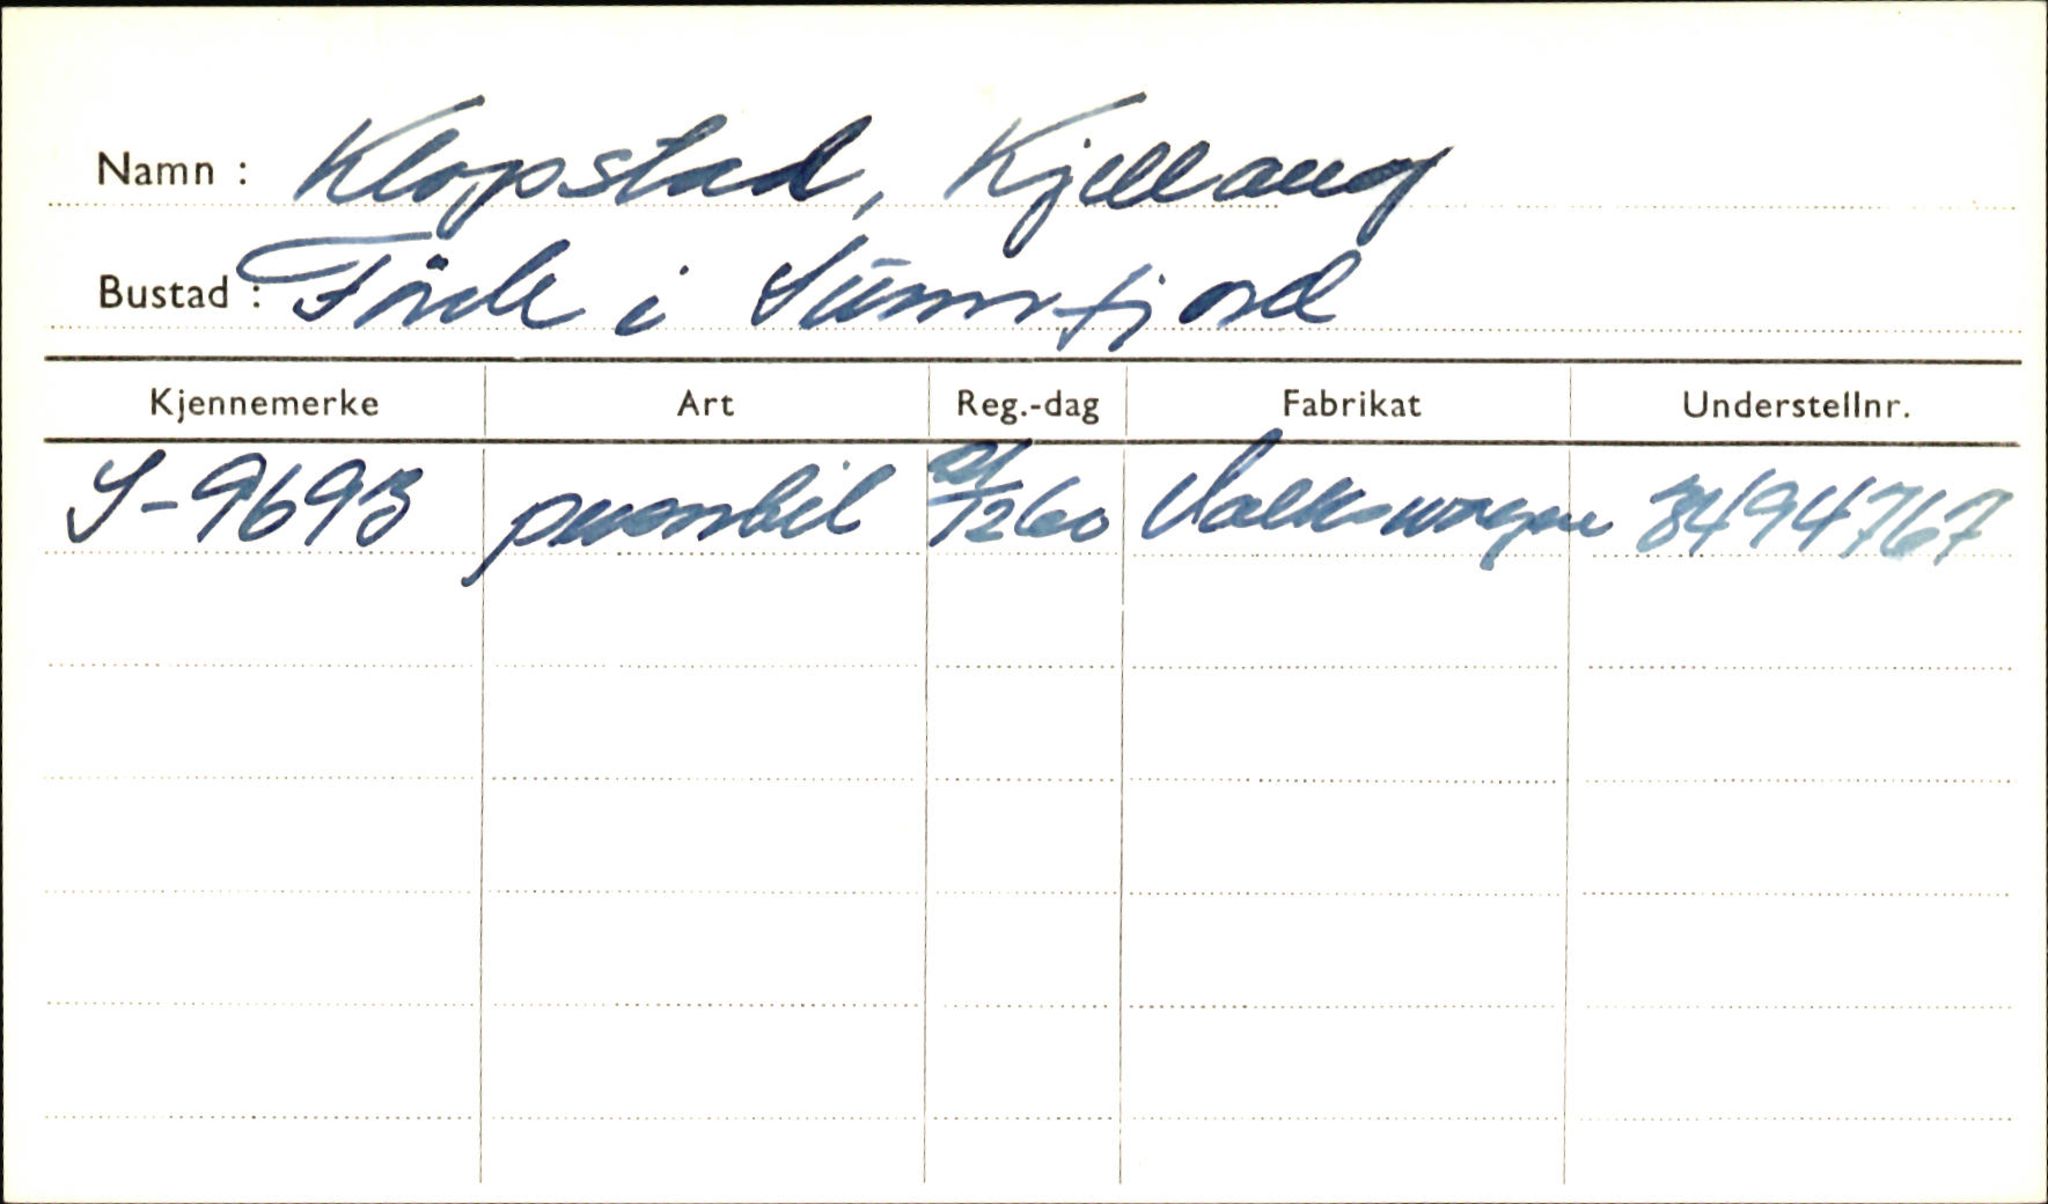 Namn : Klopstad, Kjellaug
Bustad : Förde i Sunnfjord
Kjennemerke Art Reg.-dag Fabrikat Understellnr.
S-9693 personbil /1260 Volkswagen 3494767